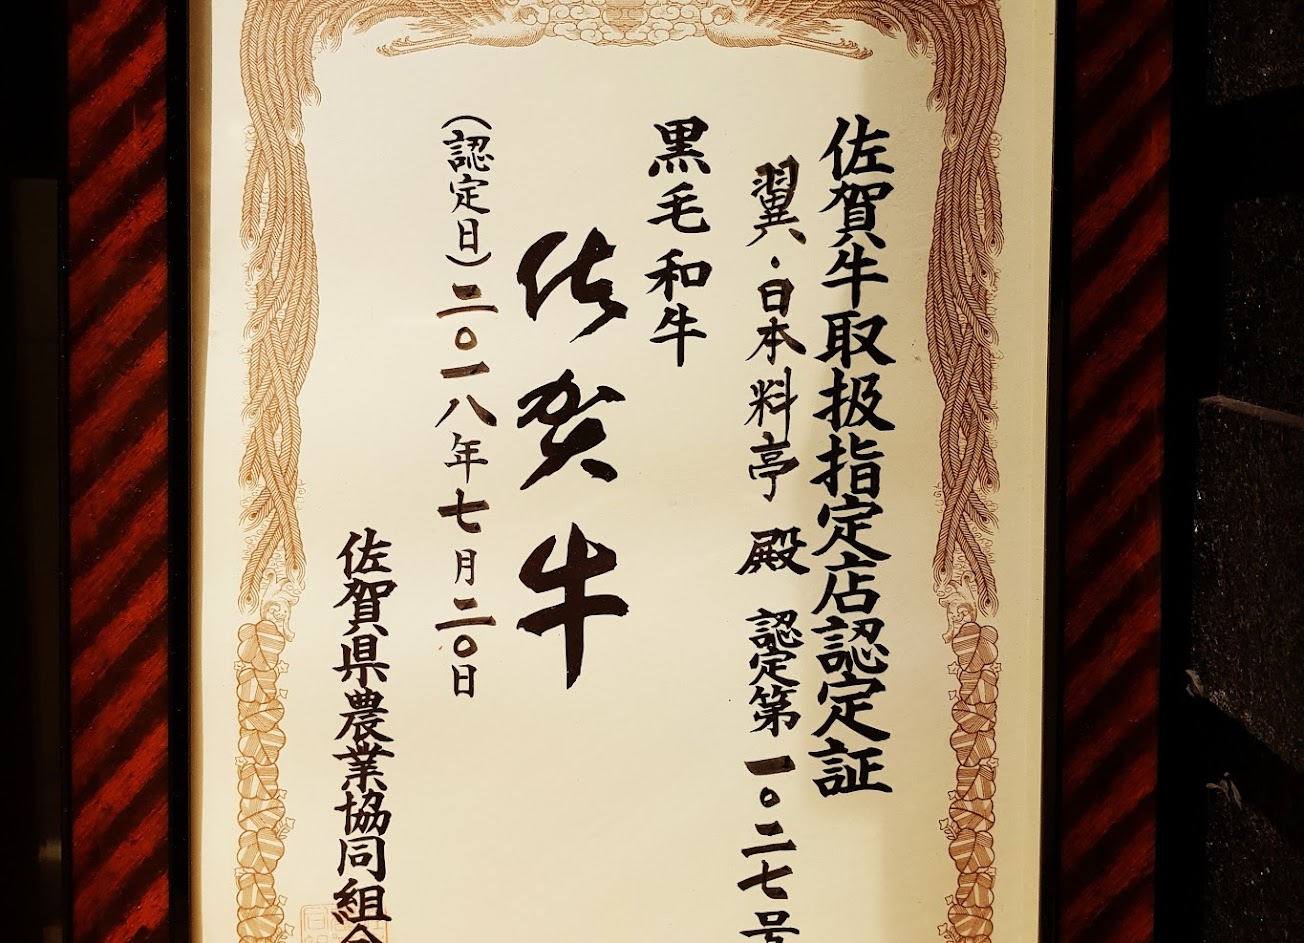 佐賀牛取扱指定店認定証
翼・日本料亭 殿 認定第一〇二七号
黒毛和牛
佐賀牛
（認定日）二〇一八年七月二〇日
佐賀県農業協同組合